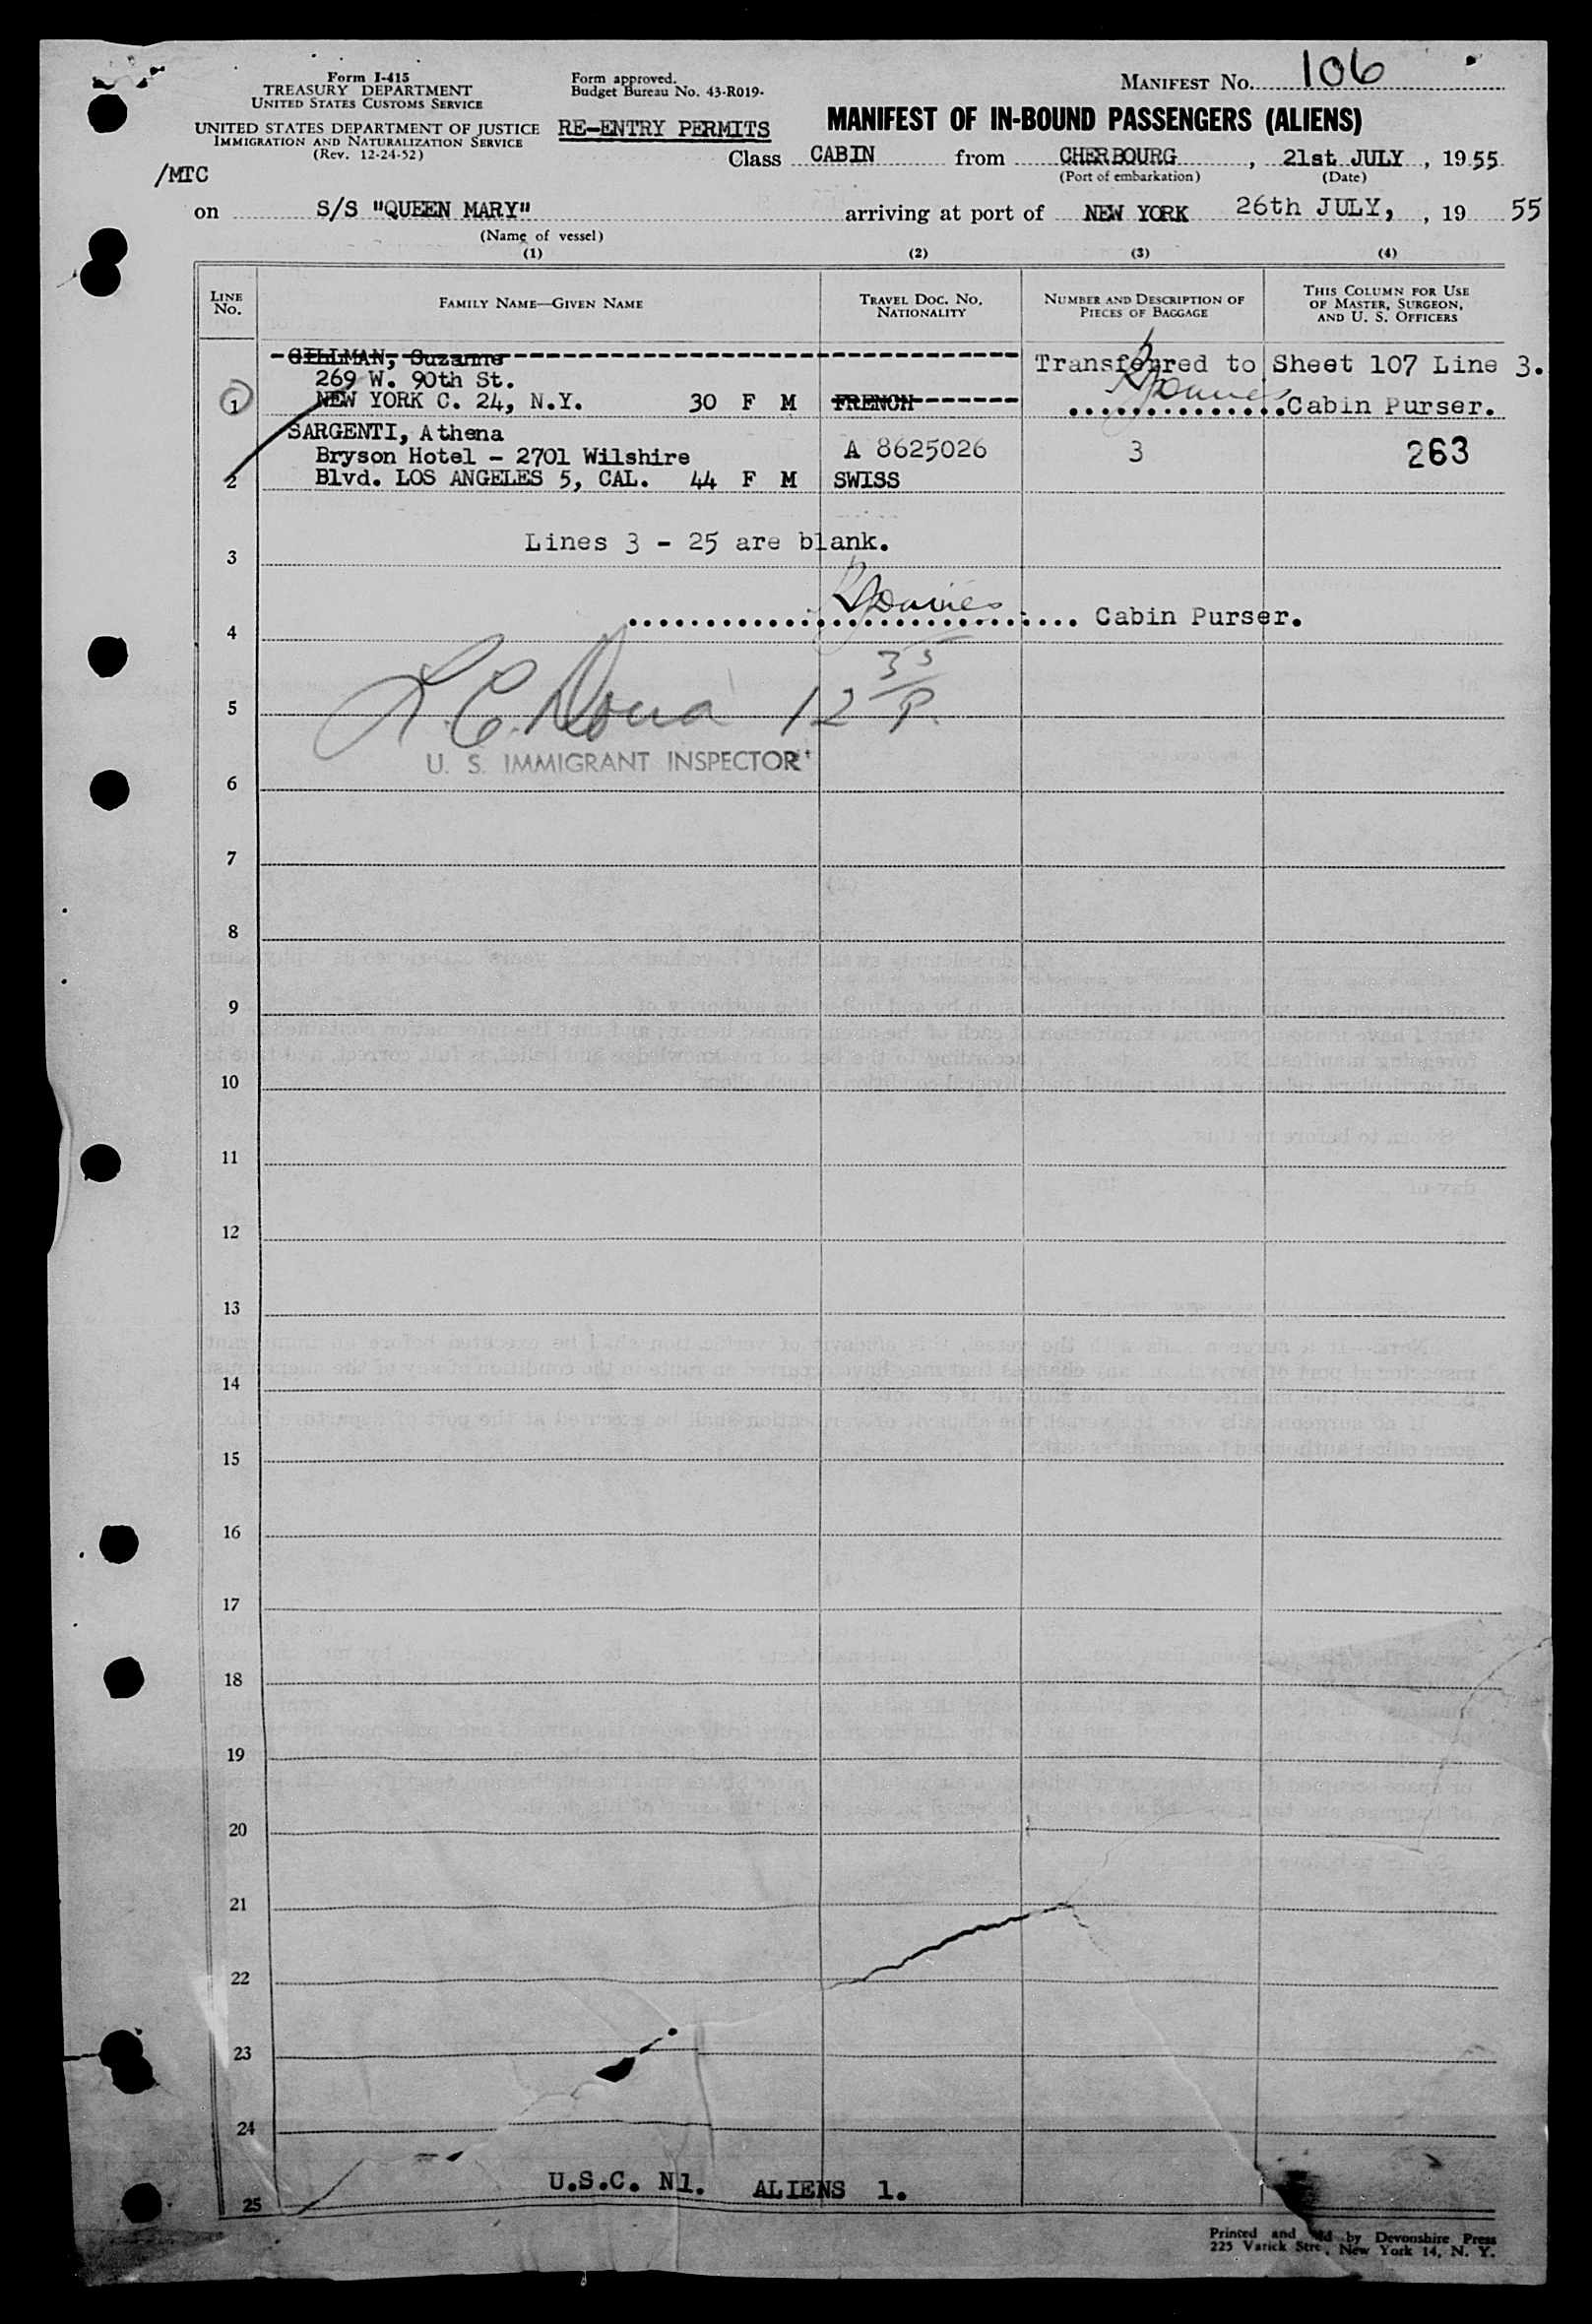 Form I-415
TREASURY DEPARTMENT
UNITED STATES CUSTOMS SERVICE
UNITED STATES DEPARTMENT OF JUSTICE
IMMIGRATION AND NATURALIZATION SERVICE
(Rev. 12-24-52)
Form approved.
Budget Bureau No. 43-R019-
RE-ENTRY PERMITS
MANIFEST NO. 106
MANIFEST OF IN-BOUND PASSENGERS (ALIENS)
Class CABIN from CHERBOURG, 21st JULY, 1955
(Port of embarkation) (Date)
/MTC
on S/S "QUEEN MARY" arriving at port of NEW YORK 26th JULY, , 19 55
(Name of vessel)
(1) (2) (3) (4)
LINE NO.
FAMILY NAME—GIVEN NAME
TRAVEL DOC. NO.
NATIONALITY
NUMBER AND DESCRIPTION OF
PIECES OF BAGGAGE
THIS COLUMN FOR USE
OF MASTER, SURGEON,
AND U. S. OFFICERS
GILLMAN, Suzanne Transferred to Sheet 107 Line 3.
269 W. 90th St.
1 NEW YORK C. 24, N.Y. 30 F M FRENCH Cabin Purser.
SARGENTI, Athena
Bryson Hotel - 2701 Wilshire A 8625026 3 263
2 Blvd. LOS ANGELES 5, CAL. 44 F M SWISS
Lines 3 - 25 are blank.
3
Cabin Purser.
4
12 35/P.
5
U. S. IMMIGRANT INSPECTOR
6
7
8
9
10
11
12
13
14
15
16
17
18
19
20
21
22
23
24
U.S.C. N1. ALIENS 1.
25
Printed and by Devonshire Press
225 Varick Stre , New York 14, N. Y.